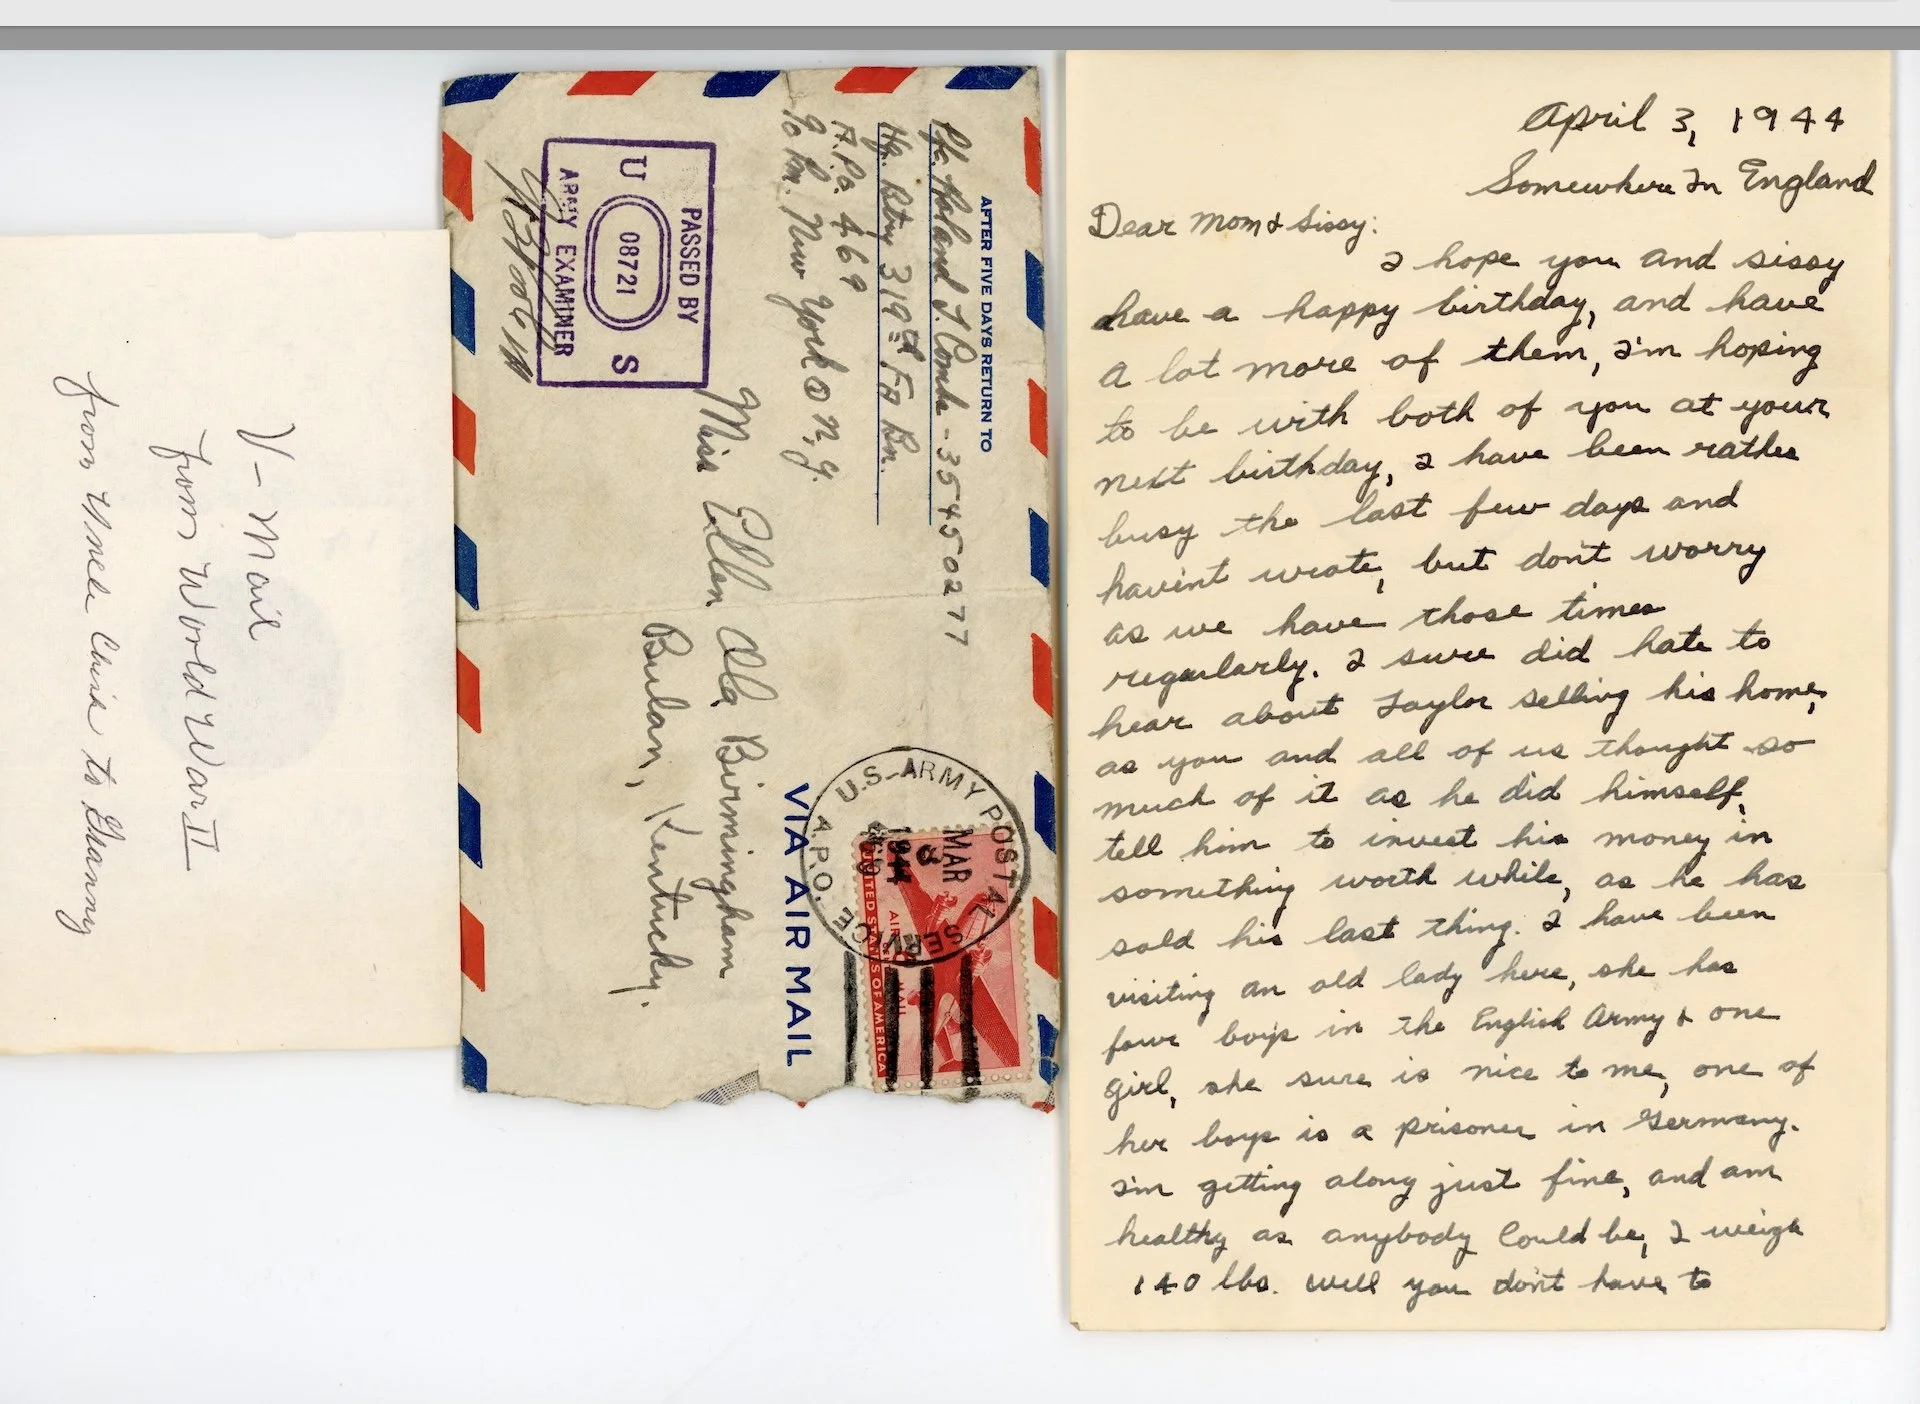 V-Mail
from World War II
from Uncle Chris to Granny
AFTER FIVE DAYS RETURN TO
Pfc. Holand J. Combs - 35450277
Hq. Btry 319th FA Bn.
A.P.O. 469
% P.M. New York, N.Y.
PASSED BY
U 08721 S
ARMY EXAMINER
Miss Ellen Ola Birmingham
Bulan, Kentucky.
VIA AIR MAIL
U.S-ARMY POSTAL SERVICE
A.P.O.
MAR
8
1944
AIR MAIL
UNITED STATES OF AMERICA
April 3, 1944
Somewhere In England
Dear Mom & Sissy:
I hope you and sissy
have a happy birthday, and have
a lot more of them, I'm hoping
to be with both of you at your
next birthday, I have been rather
busy the last few days and
havint wrote, but don't worry
as we have those times
regularly. I sure did hate to
hear about Taylor selling his home,
as you and all of us thought so
much of it as he did himself,
tell him to invest his money in
something worth while, as he has
sold his last thing. I have been
visiting an old lady here, she has
four boys in the English Army & one
girl, she sure is nice to me, one of
her boys is a prisoner in Germany.
I'm getting along just fine, and am
healthy as anybody could be, I weigh
140 lbs. Well you don't have to